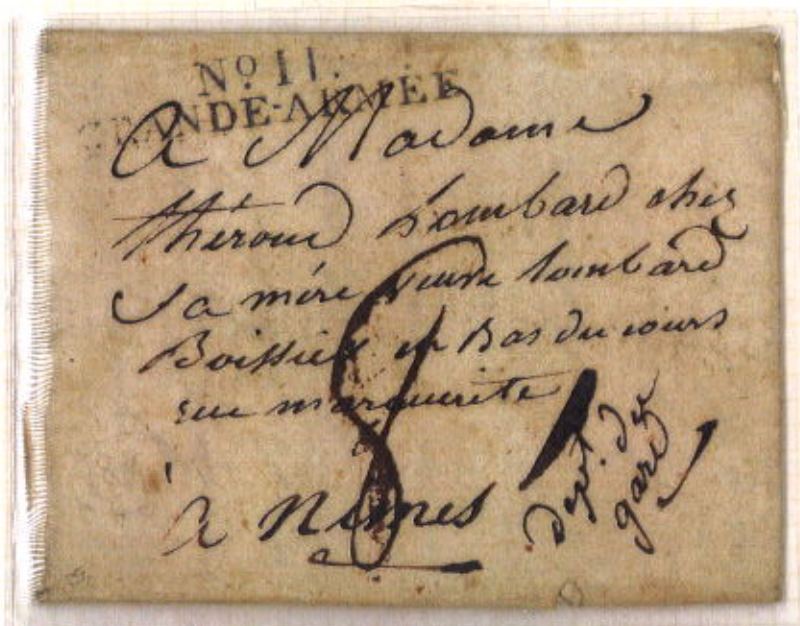 No 11.
GRANDE-ARMÉE
A Madame
thérond Lombard chez
Sa mère veuve lombard
Boissier en Bas du cours
rue marguerite
à Nimes
dept. du
gard
8